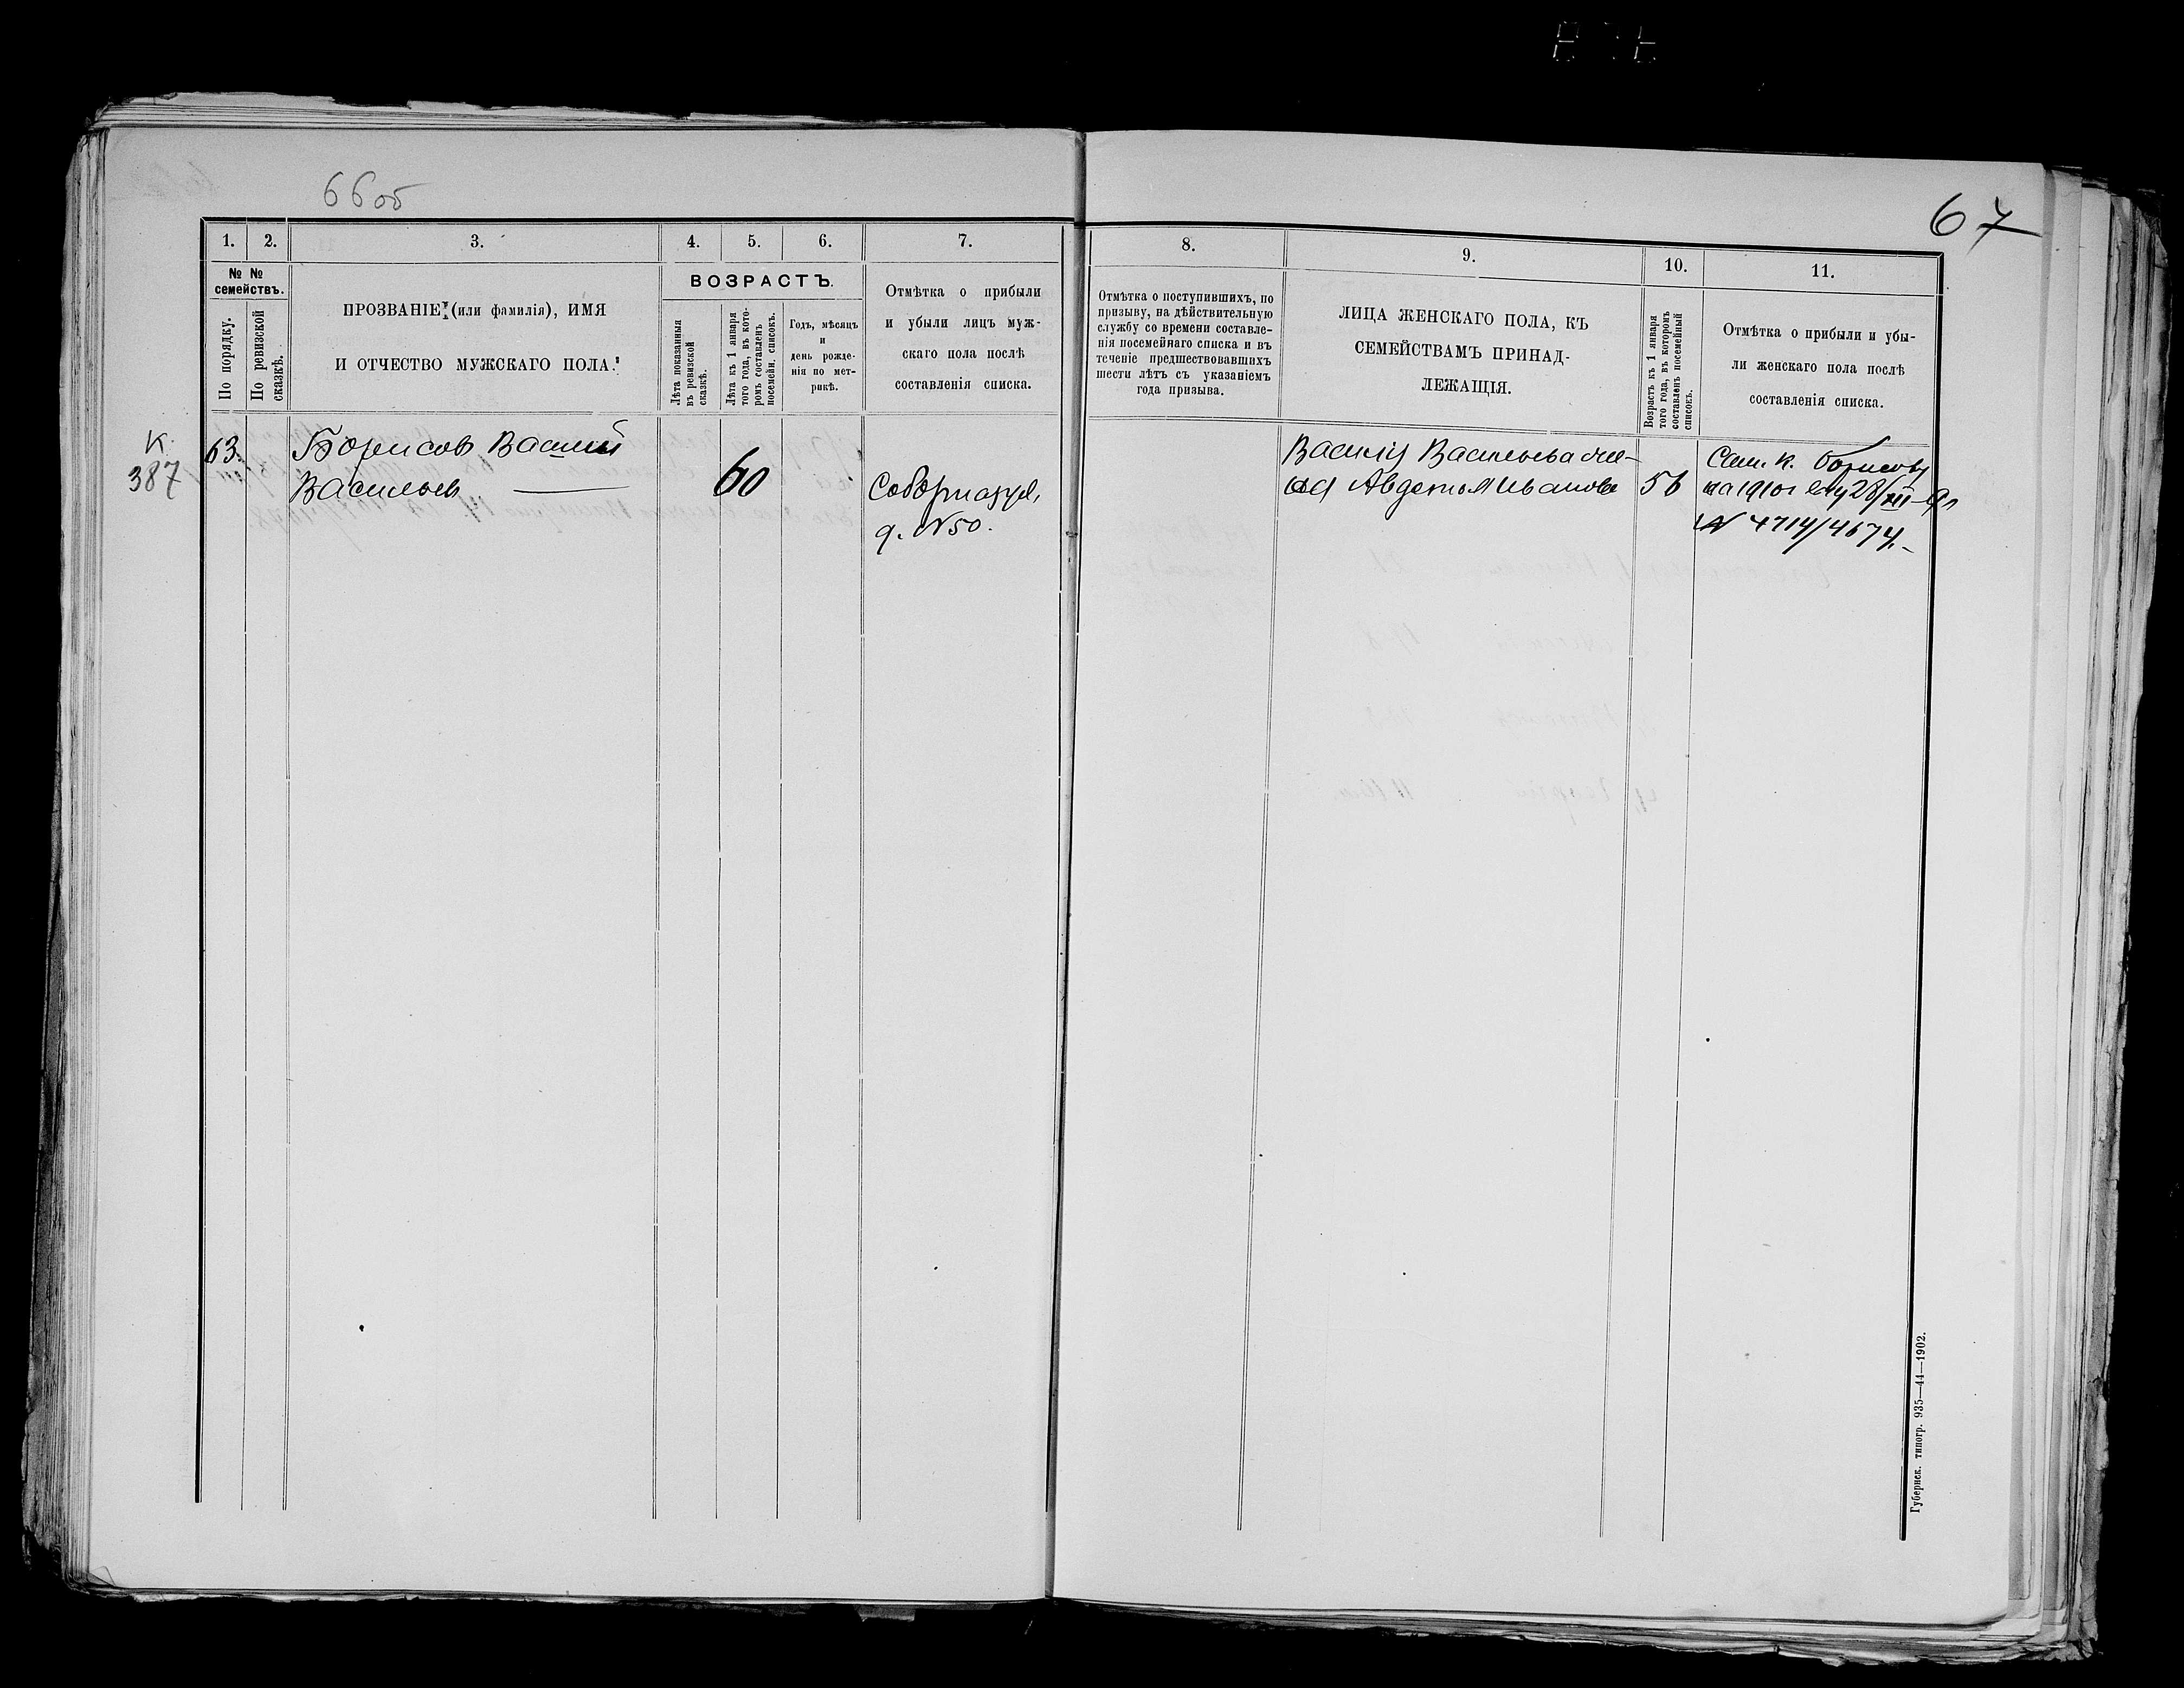 66об
67
1.
2.
3.
4.
5.
6.
7.
8.
9.
10.
11.
№ №
семействъ.
По порядку.
По ревизской
сказкѣ.
ПРОЗВАНІЕ (или фамилія), ИМЯ
И ОТЧЕСТВО МУЖСКАГО ПОЛА.
ВОЗРАСТЪ.
Лѣта показанныя
въ ревизской
сказкѣ.
Лѣта къ 1 января
того года, въ кото-
ромъ составленъ
посемейн. списокъ.
Годъ, мѣсяцъ
и
день рожде-
нія по мет-
рикѣ.
Отмѣтка о прибыли
и убыли лицъ муж-
скаго пола послѣ
составленія списка.
Отмѣтка о поступившихъ, по
призыву, на дѣйствительную
службу со времени составле-
нія посемейнаго списка и въ
теченіе предшествовавшихъ
шести лѣтъ съ указаніемъ
года призыва.
ЛИЦА ЖЕНСКАГО ПОЛА, КЪ
СЕМЕЙСТВАМЪ ПРИНАД-
ЛЕЖАЩІЯ.
Возрастъ къ 1 января
того года, въ которомъ
составленъ посемейный
списокъ.
Отмѣтка о прибыли и убы-
ли женскаго пола послѣ
составленія списка.
К.
387
63.
Борисов Василий
Васильев
60
Соборная ул,
д. №50.
Василия Васильева же-
на Авдотья Иванова
56
Сем. к. Борисову
на 1910г ему 28/XII-9г
№ 4714/4674.-
Губернск. типогр. 935—44—1902.